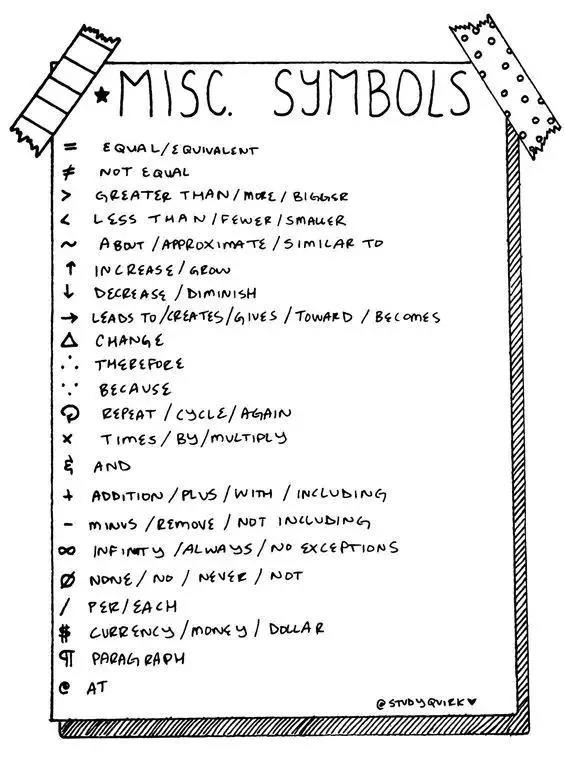 ★ MISC. SYMBOLS
= EQUAL/EQUIVALENT
≠ NOT EQUAL
> GREATER THAN/MORE/BIGGER
< LESS THAN/FEWER/SMALLER
~ ABOUT/APPROXIMATE/SIMILAR TO
↑ INCREASE/GROW
↓ DECREASE/DIMINISH
→ LEADS TO/CREATES/GIVES/TOWARD/BECOMES
△ CHANGE
∴ THEREFORE
∵ BECAUSE
↻ REPEAT/CYCLE/AGAIN
× TIMES/BY/MULTIPLY
& AND
+ ADDITION/PLUS/WITH/INCLUDING
- MINUS/REMOVE/NOT INCLUDING
∞ INFINITY/ALWAYS/NO EXCEPTIONS
Ø NONE/NO/NEVER/NOT
/ PER/EACH
$ CURRENCY/MONEY/DOLLAR
¶ PARAGRAPH
@ AT
@STUDYQUIRK♥